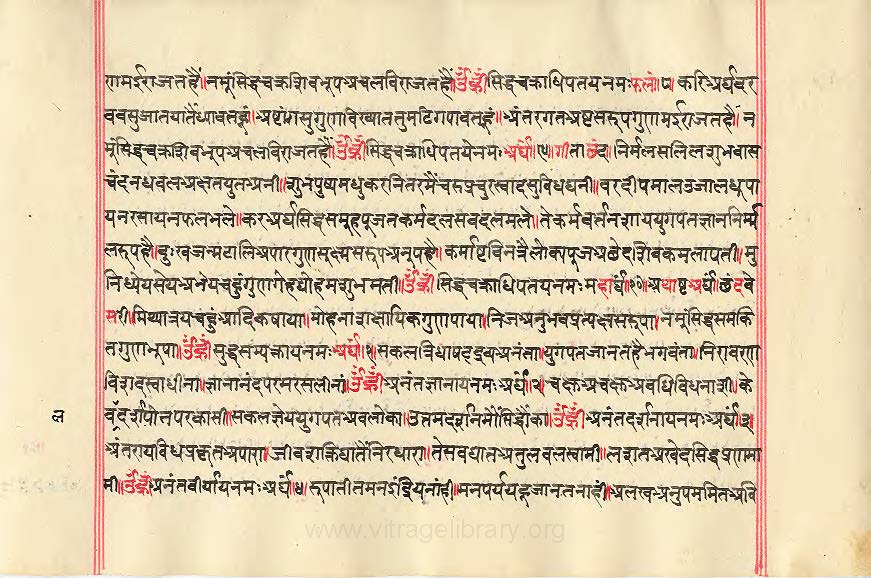 राामईराजतहैं॥नमूंसिद्धचक्रशिवभूपअचलविराजतहैं॥ॐह्रीं सिद्धचक्राधिपतयेनमः फलं॥८॥ करिअर्घ्यवर
वसुजातयातैंध्यावतहूं॥अष्टांगसुगुणविख्याततुमढिगपावतहूं॥अंतरगतअष्टसरूपगुणामईराजतहैं॥न
मूंसिद्धचक्रशिवभूपअचलविराजतहैं॥ॐह्रीं सिद्धचक्राधिपतयेनमः अर्घं॥९॥गीताछंद॥निर्मलसलिलशुभवास
चंदनधवलअक्षतयुतअनी॥शुभपुष्पमधुकरनितरमैंचरुप्रचुरस्वादसुविधघनी॥वरदीपमालउजालधूपा
यनरसायनफलभले॥करअर्घसिद्धसमूहपूजतकर्मदलसबदलमले॥तेकर्मवर्त्तनशाययुगपतज्ञाननिर्म्म
लरूपहै॥दुःखजन्मटालिअपारगुणसूक्ष्मसरूपअनूपहै॥कर्माष्टविनत्रैलोक्यपूजअछेदशिवकमलापती॥मु
निध्येयसेयअभेयचहुंगुणगेहद्योहमशुभमती॥ॐह्रीं सिद्धचक्राधिपतयेनमः महार्घं॥१०॥अथाष्टअर्घं॥छंदचे
सरी॥मिथ्यात्रयचहुंआदिकषाया॥मोहनाशक्षायिकगुणपाया॥निजअनुभवप्रत्यक्षसरूपा॥नमूंसिद्धसमकि
तगुणभूपा॥ॐह्रीं सुद्धसम्यक्तायनमः अर्घं॥१॥सकलत्रिधाषट्द्रव्यअनंता॥युगपतजानतहैभगवंता॥निरावरण
विशदस्वाधीना॥ज्ञानानंदपरमरसलीनां॥ॐह्रीं अनंतज्ञानायनमः अर्घं॥२॥चक्षुअचक्षुअवधिविधनाशी॥के
वलदर्शप्रोनपरकासी॥सकलज्ञेययुगपतअवलोका॥उत्तमदर्शनमौंसिद्धौंका॥ॐह्रीं अनंतदर्शनायनमः अर्घं॥३॥
ल
अंतरायविधप्रकृतअपारा॥जीवशक्तिघातैंनिरधारा॥तेसबघातअतुलबलस्वामी॥लशतअखेदसिद्धप्रणमा
मी॥ॐह्रीं अनंतवीर्यायनमः अर्घं॥४॥रूपातीतमनइंद्रियनांही॥मनपर्ययहूजानतनाही॥अलखअनुपममितअवि
www.vitragelibrary.org